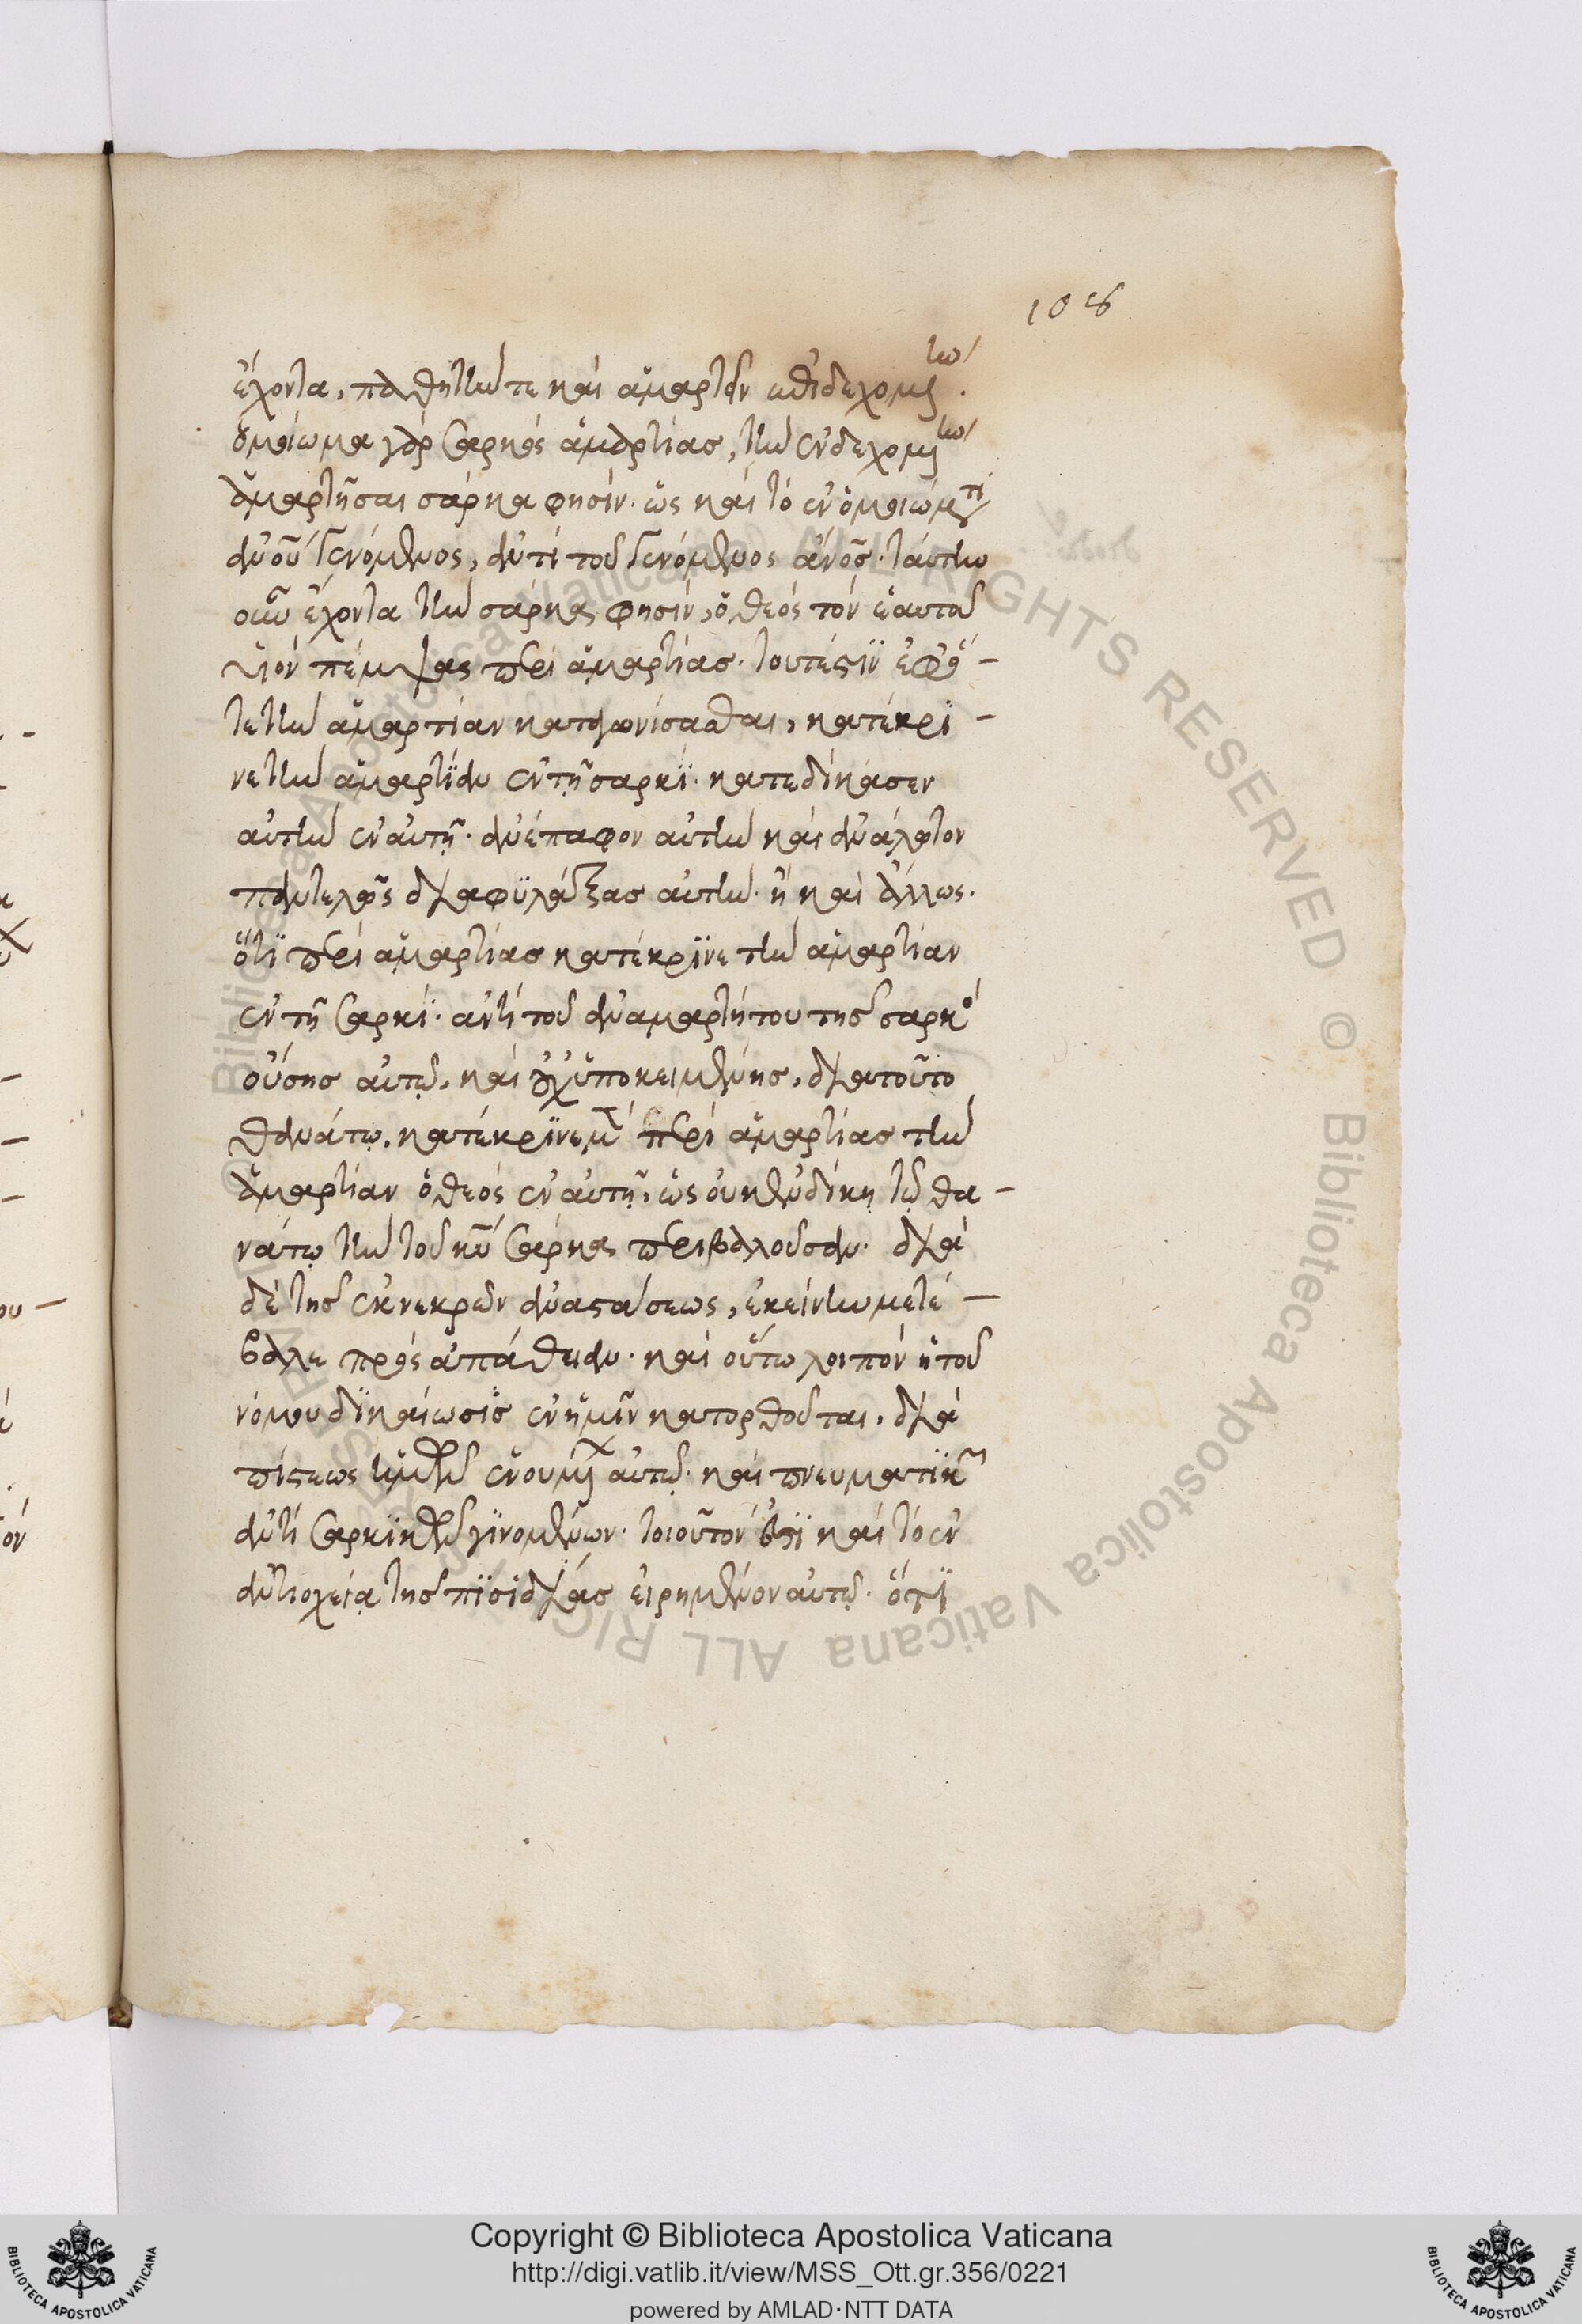 108
ἔχοντα, παθητήν τε καὶ ἁμαρτεῖν ἐπιδεχομένην.
ὁμοίωμα γὰρ σαρκὸς ἁμαρτίας, τὴν ἐνδεχομένην
ἁμαρτῆσαι σάρκα φησίν· ὡς καὶ τὸ ἐν ὁμοιώματι
ἀνου γενόμενος, ἀντὶ τοῦ γενόμενος ἄνος· ταύτην
οὖν ἔχοντα τὴν σάρκα φησὶν, ὁ θεὸς τὸν ἑαυτοῦ
υἱὸν πέμψας περὶ ἁμαρτίας· τουτέστιν
τε τὴν ἁμαρτίαν καταγωνίσασθαι, κατέκρι-
νε τὴν ἁμαρτίαν ἐν τῇ σαρκί· κατεδίκασεν
αὐτὴν ἐν αὐτῇ· ἀνέπαφον αὐτὴν καὶ ἀνάλωτον
παντελῶς διαφυλάξας αὐτήν· ἢ καὶ ἄλλως·
ὅτι περὶ ἁμαρτίας κατέκρινε τὴν ἁμαρτίαν
ἐν τῇ σαρκί· ἀντὶ τοῦ ἀναμαρτήτου τῆς σαρκὸς
οὔσης αὐτῷ, καὶ οὐχ ὑποκειμένης, διατοῦτο
θανάτῳ, κατέκρινε περὶ ἁμαρτίας τὴν
ἁμαρτίαν ὁ θεὸς ἐν αὐτῇ, ὡς οὐκ ἐνδίκῃ τῷ θα-
νάτῳ τὴν τοῦ κυ σάρκα περιβαλοῦσαν· διὰ
δὲ τῆς ἐκ νεκρῶν ἀναστάσεως, ἐκείνην μετέ-
βαλε πρὸς ἀπάθειαν· καὶ οὕτω λοιπὸν ἡ τοῦ
νόμου δικαίωσις ἐν ἡμῖν κατορθοῦται, διὰ
πίστεως ἡμῶν ἑνουμένων αὐτῷ· καὶ πνευματικῶν
ἀντὶ σαρκικῶν γινομένων· τοιοῦτόν ἐστι καὶ τὸ ἐν
ἀντιοχείᾳ τῆς πισιδίας εἰρημένον αὐτῷ· ὅτι
Copyright © Biblioteca Apostolica Vaticana
http://digi.vatlib.it/view/MSS_Ott.gr.356/0221
powered by AMLAD·NTT DATA